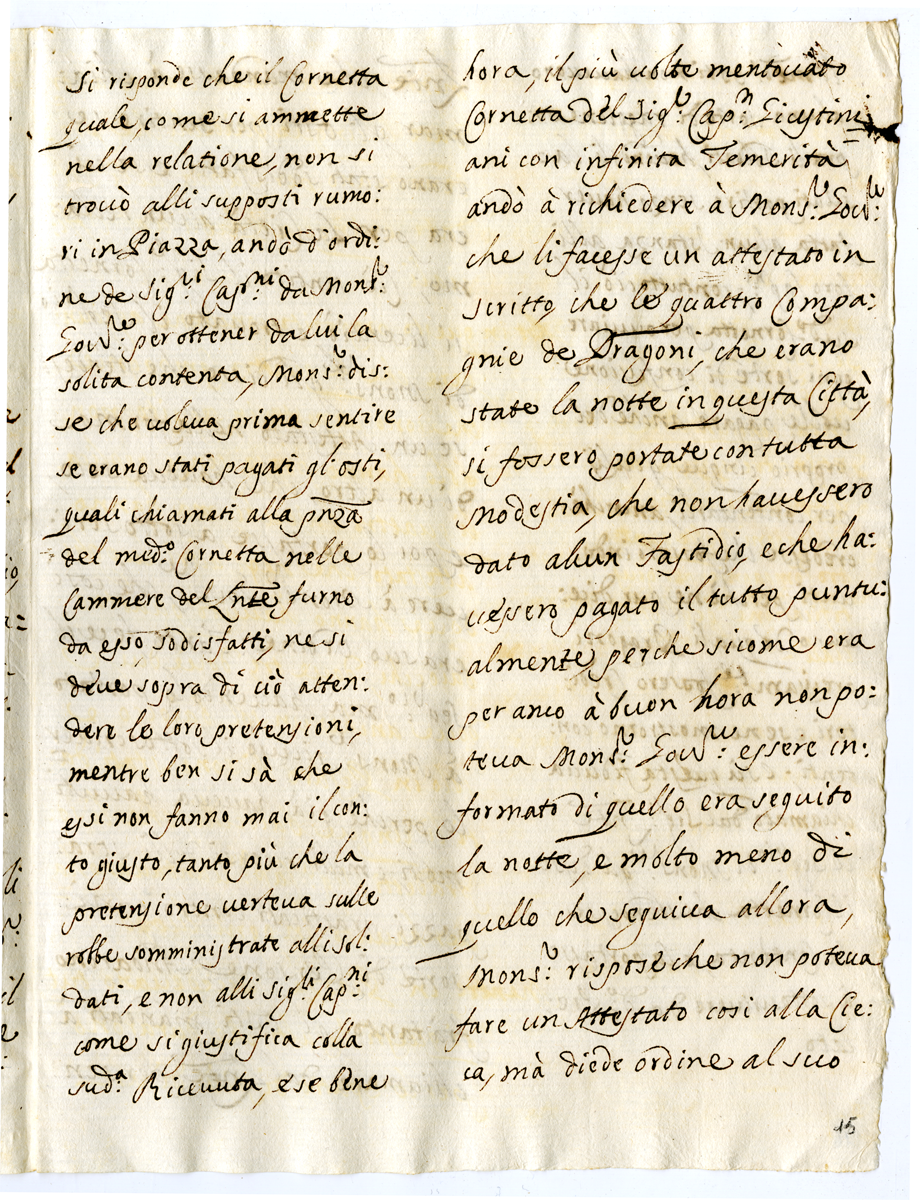 Si risponde che il Cornetta
quale, come si ammette
nella relatione, non si
trovò alli supposti rumo:
ri in Piazza, andò d'ordi:
ne de Sig:ri Cap:ni da Mons:r
Gov:re per ottener da lui la
solita contenta, Mons:r dis:
se che voleva prima sentire
se erano stati pagati gl'osti,
quali chiamati alla pñza
del med:o Cornetta nelle
Cammere del Lñte furno
da esso, sodisfatti, ne si
deve sopra di ciò atten:
dere le loro pretensioni,
mentre ben si sà che
essi non fanno mai il con:
to giusto, tanto più che la
pretensione verteva sulle
robbe somministrate alli sol:
dati, e non alli Sig:li Cap:ni
come si giustifica colla
sud:a Ricevuta, e se bene
hora, il più volte mentovato
Cornetta del Sig:r Cap:n Giustini
ani con infinita Temerità
andò à richiedere à Mons:r Gov:re
che li facesse un attestato in
scritto, che le quattro Compa:
gnie de Dragoni, che erano
state la notte in questa Città,
si fossero portate con tutta
Modestia, che non havessero
dato alcun Fastidio, e che ha:
vessero pagato il tutto puntu:
almente, perche sicome era
per anco à buon hora non po:
teva Mons:r Gov:re essere in:
formato di quello era seguito
la notte, e molto meno di
quello che seguiva allora,
Mons:r rispose che non poteva
fare un Attestato così alla Cie:
ca, mà diede ordine al suo
15